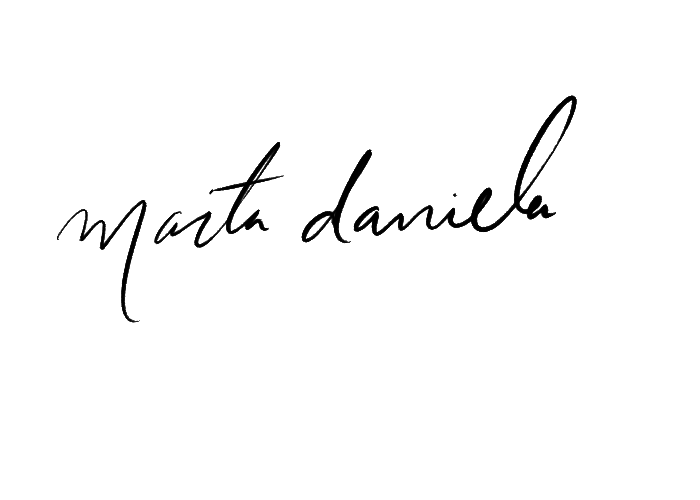 marta daniela